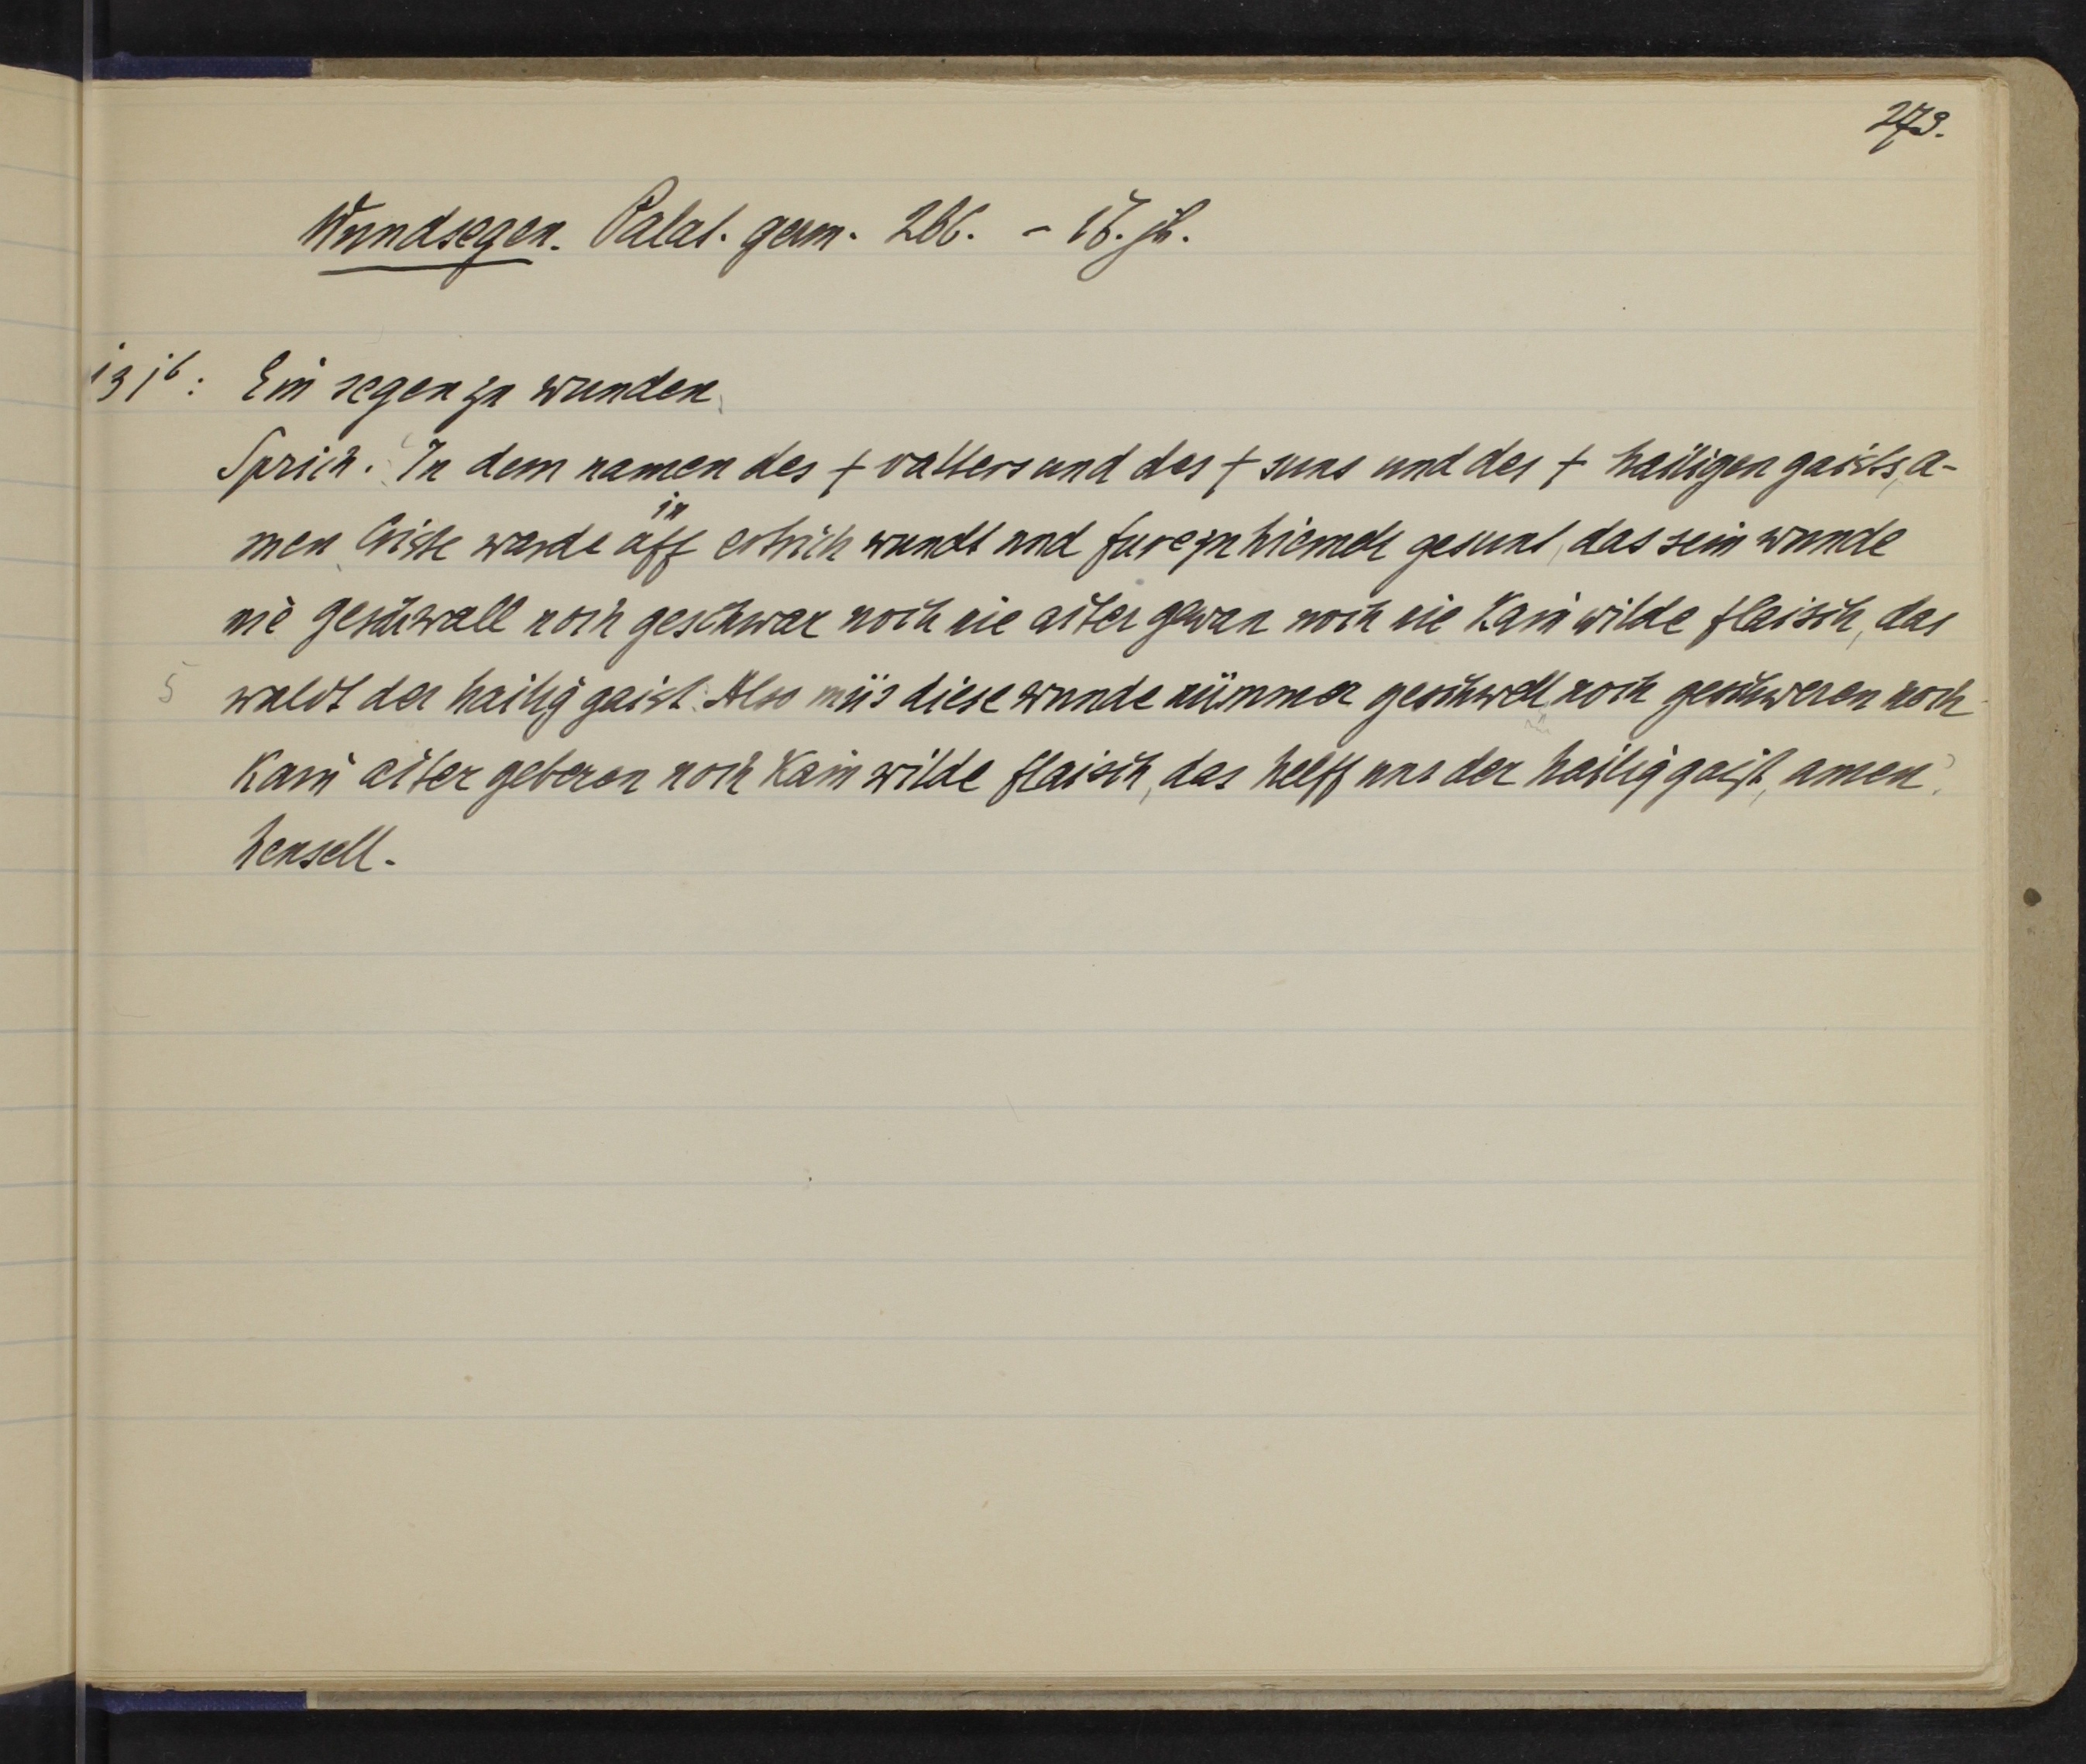 273.
Wundsegen. Palat. germ. 266. – 16. jh.
131b: Ein segen zu wunden.
Sprich. In dem namen des † vatters und des † suns und des † hailigen gaists, a-
in
men. Criste warde üff ertrich wundt und fure zu hiemel gesunt, das sein wunde
nie geschwall noch geschwar noch nie aiter gewan noch nie kain wilde flaisch, das
5 waldt der hailig gaist. Also müs diese wunde nümmer geschwell noch geschweren noch
kain aiter geberen noch kain wilde flaisch, das helff uns der hailig gaist, amen.
hensell.